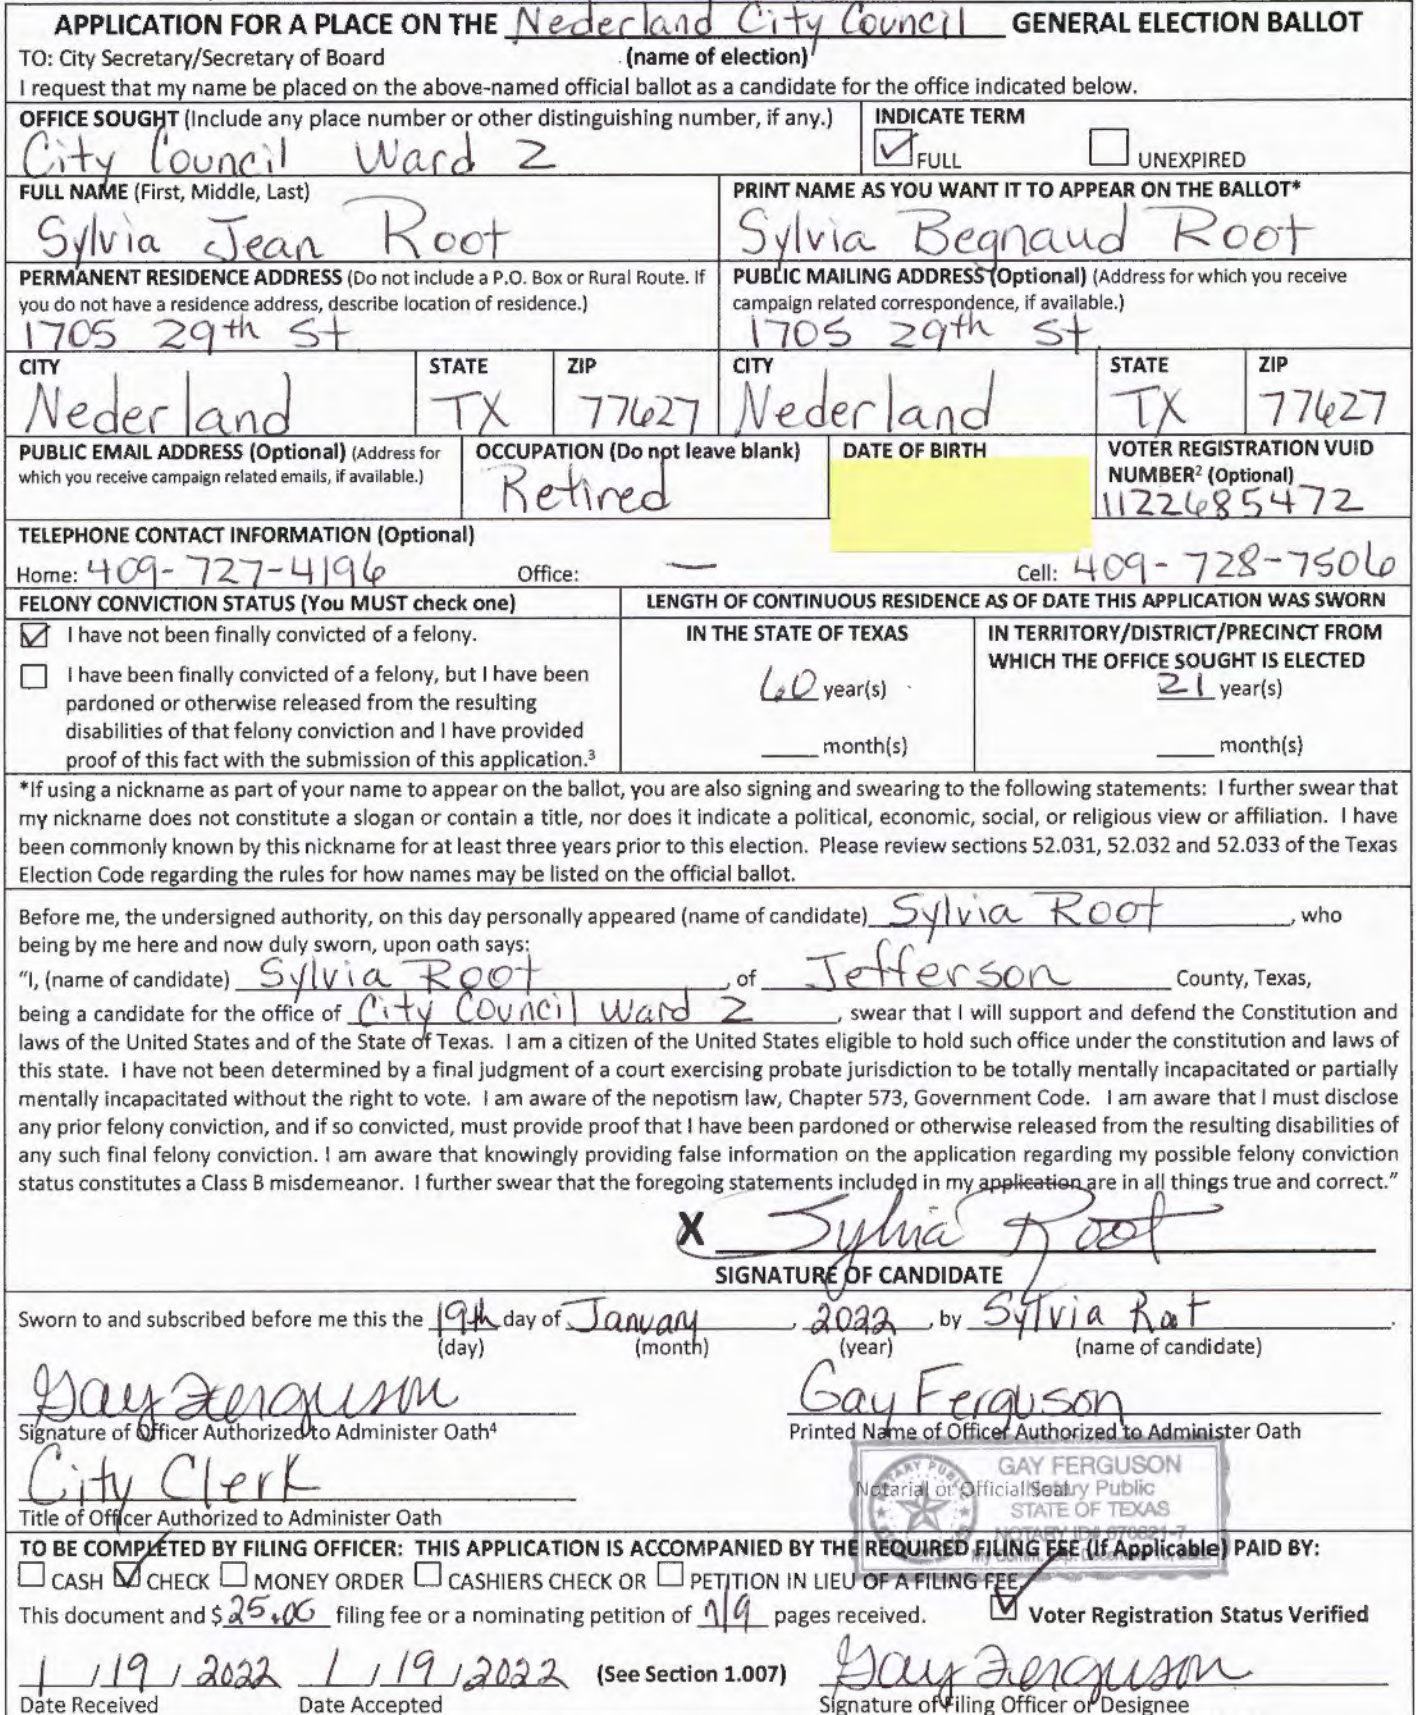 APPLICATION FOR A PLACE ON THE Nederland City Council GENERAL ELECTION BALLOT
TO: City Secretary/Secretary of Board (name of election)
I request that my name be placed on the above-named official ballot as a candidate for the office indicated below.
OFFICE SOUGHT (Include any place number or other distinguishing number, if any.)
City Council Ward 2
INDICATE TERM
☑ FULL ☐ UNEXPIRED
FULL NAME (First, Middle, Last)
Sylvia Jean Root
PRINT NAME AS YOU WANT IT TO APPEAR ON THE BALLOT*
Sylvia Begnaud Root
PERMANENT RESIDENCE ADDRESS (Do not include a P.O. Box or Rural Route. If
you do not have a residence address, describe location of residence.)
1705 29th St
PUBLIC MAILING ADDRESS (Optional) (Address for which you receive
campaign related correspondence, if available.)
1705 29th St
CITY STATE ZIP CITY STATE ZIP
Nederland TX 77627 Nederland TX 77627
PUBLIC EMAIL ADDRESS (Optional) (Address for
which you receive campaign related emails, if available.)
OCCUPATION (Do not leave blank)
Retired
DATE OF BIRTH
VOTER REGISTRATION VUID
NUMBER² (Optional)
1122685472
TELEPHONE CONTACT INFORMATION (Optional)
Home: 409-727-4196 Office: — Cell: 409-728-7506
FELONY CONVICTION STATUS (You MUST check one)
☑ I have not been finally convicted of a felony.
☐ I have been finally convicted of a felony, but I have been
pardoned or otherwise released from the resulting
disabilities of that felony conviction and I have provided
proof of this fact with the submission of this application.³
LENGTH OF CONTINUOUS RESIDENCE AS OF DATE THIS APPLICATION WAS SWORN
IN THE STATE OF TEXAS
60 year(s)
month(s)
IN TERRITORY/DISTRICT/PRECINCT FROM
WHICH THE OFFICE SOUGHT IS ELECTED
21 year(s)
month(s)
*If using a nickname as part of your name to appear on the ballot, you are also signing and swearing to the following statements: I further swear that
my nickname does not constitute a slogan or contain a title, nor does it indicate a political, economic, social, or religious view or affiliation. I have
been commonly known by this nickname for at least three years prior to this election. Please review sections 52.031, 52.032 and 52.033 of the Texas
Election Code regarding the rules for how names may be listed on the official ballot.
Before me, the undersigned authority, on this day personally appeared (name of candidate) Sylvia Root, who
being by me here and now duly sworn, upon oath says:
"I, (name of candidate) Sylvia Root, of Jefferson County, Texas,
being a candidate for the office of City Council Ward 2, swear that I will support and defend the Constitution and
laws of the United States and of the State of Texas. I am a citizen of the United States eligible to hold such office under the constitution and laws of
this state. I have not been determined by a final judgment of a court exercising probate jurisdiction to be totally mentally incapacitated or partially
mentally incapacitated without the right to vote. I am aware of the nepotism law, Chapter 573, Government Code. I am aware that I must disclose
any prior felony conviction, and if so convicted, must provide proof that I have been pardoned or otherwise released from the resulting disabilities of
any such final felony conviction. I am aware that knowingly providing false information on the application regarding my possible felony conviction
status constitutes a Class B misdemeanor. I further swear that the foregoing statements included in my application are in all things true and correct."
X Sylvia Root
SIGNATURE OF CANDIDATE
Sworn to and subscribed before me this the 19th day of January, 2022, by Sylvia Root.
(day) (month) (year) (name of candidate)
Gay Ferguson Gay Ferguson
Signature of Officer Authorized to Administer Oath⁴ Printed Name of Officer Authorized to Administer Oath
City Clerk
Title of Officer Authorized to Administer Oath
Notarial or Official Seal
GAY FERGUSON
Notary Public
STATE OF TEXAS
TO BE COMPLETED BY FILING OFFICER: THIS APPLICATION IS ACCOMPANIED BY THE REQUIRED FILING FEE (If Applicable) PAID BY:
☐ CASH ☑ CHECK ☐ MONEY ORDER ☐ CASHIERS CHECK OR ☐ PETITION IN LIEU OF A FILING FEE.
This document and $25.00 filing fee or a nominating petition of n/a pages received. ☑ Voter Registration Status Verified
1/19/2022 1/19/2022 (See Section 1.007) Gay Ferguson
Date Received Date Accepted Signature of Filing Officer or Designee